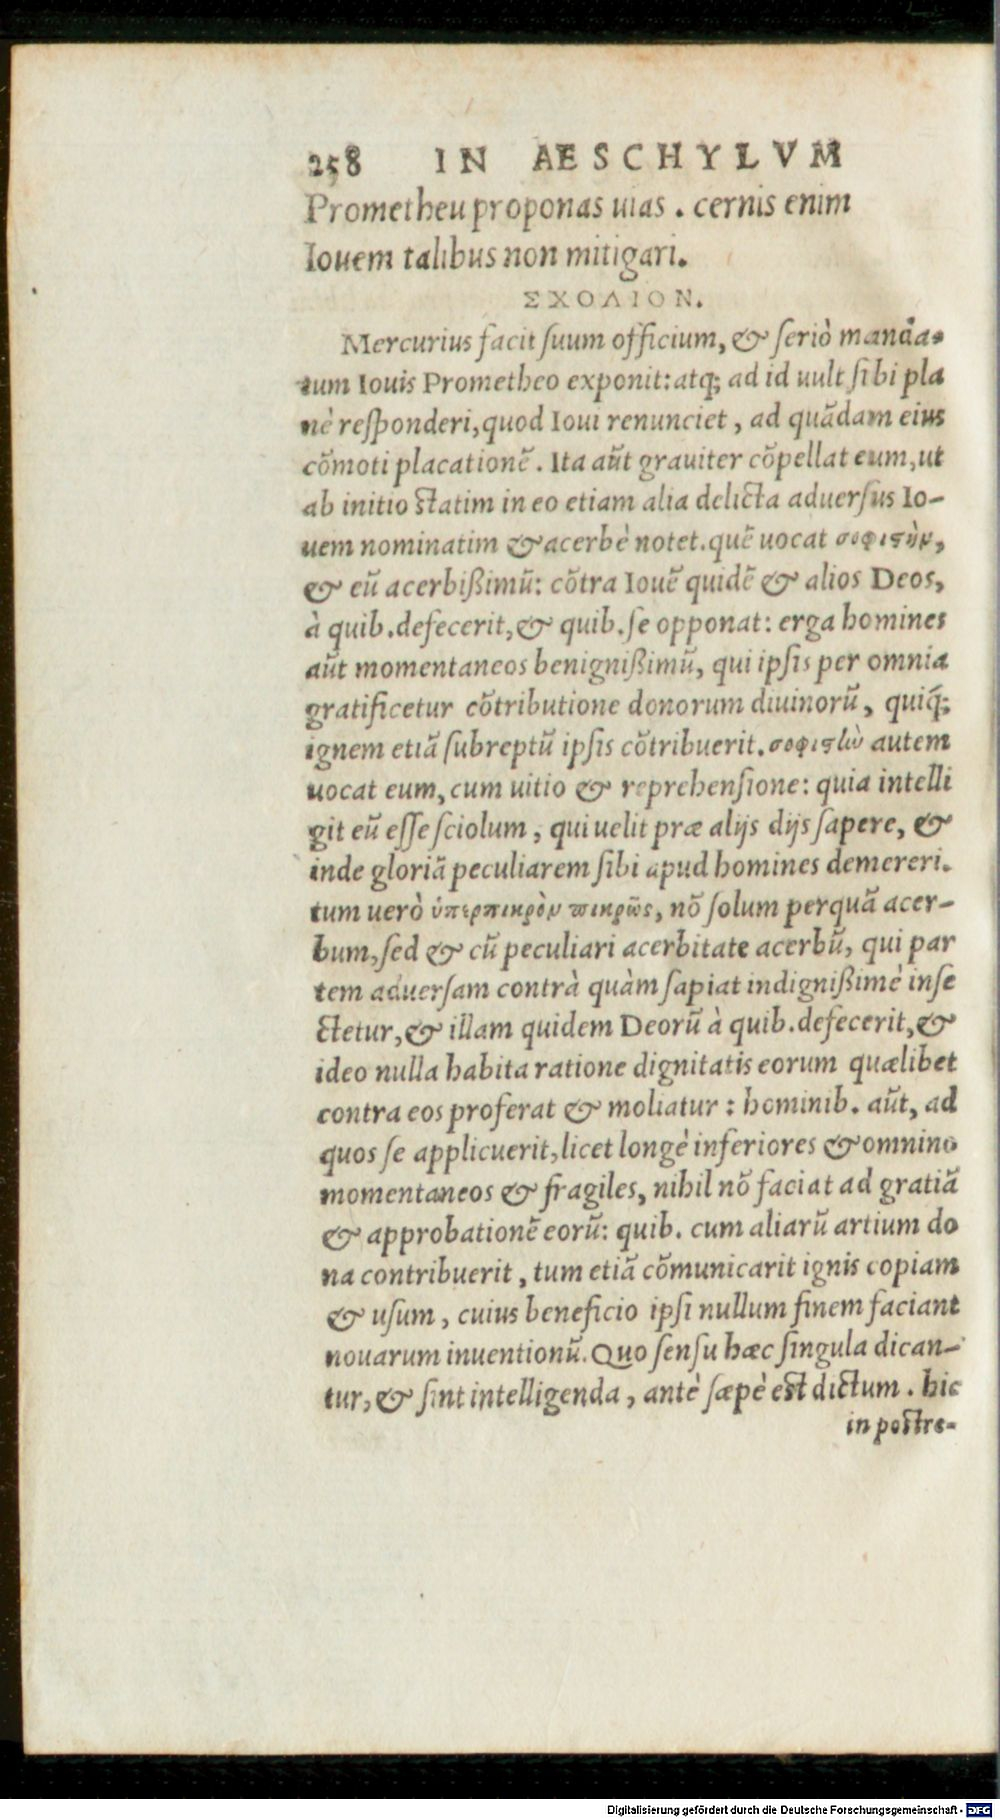 258 IN AESCHYLVM
Prometheu proponas uias. cernis enim
Iouem talibus non mitigari.
ΣΧΟΛΙΟΝ.
Mercurius facit suum officium, & seriò manda-
tum Iouis Prometheo exponit: atq; ad id uult sibi pla
nè responderi, quod Ioui renunciet, ad quãdam eius
cõmoti placationẽ. Ita aũt grauiter cõpellat eum, ut
ab initio statim in eo etiam alia delicta aduersus Io-
uem nominatim & acerbè notet. quẽ uocat σοφιστὴν,
& eũ acerbißimũ: cõtra Iouẽ quidẽ & alios Deos,
à quib. defecerit, & quib. se opponat: erga homines
aũt momentaneos benignißimũ, qui ipsis per omnia
gratificetur cõtributione donorum diuinorũ, quiq́;
ignem etiã subreptũ ipsis cõtribuerit. σοφιστὼ autem
uocat eum, cum uitio & reprehensione: quia intelli
git eũ esse sciolum, qui uelit præ alijs dijs sapere, &
inde gloriã peculiarem sibi apud homines demereri.
tum uerò ὑπερπικρὸν πικρῶς, nõ solum perquã acer-
bum, sed & cũ peculiari acerbitate acerbũ, qui par
tem aduersam contrà quàm sapiat indignißimè inse
ctetur, & illam quidem Deorũ à quib. defecerit, &
ideo nulla habita ratione dignitatis eorum quælibet
contra eos proferat & moliatur: hominib. aũt, ad
quos se applicuerit, licet longè inferiores & omnino
momentaneos & fragiles, nihil nõ faciat ad gratiã
& approbationẽ eorũ: quib. cum aliarũ artium do
na contribuerit, tum etiã cõmunicarit ignis copiam
& usum, cuius beneficio ipsi nullum finem faciant
nouarum inuentionũ. Quo sensu hæc singula dican-
tur, & sint intelligenda, antè sæpè est dictum. hic
in postre-
Digitalisierung gefördert durch die Deutsche Forschungsgemeinschaft - DFG